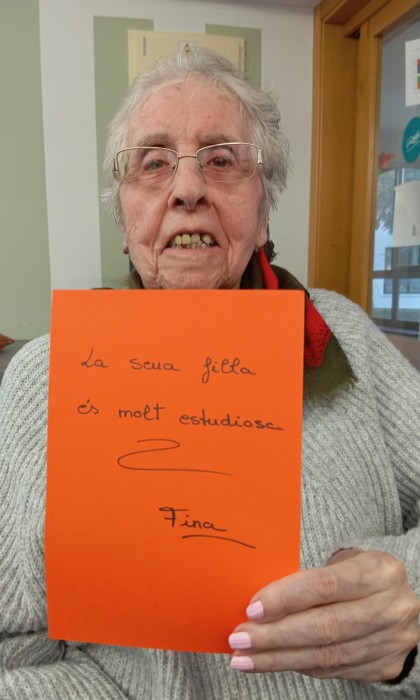 La seua filla
és molt estudiosa
Fina